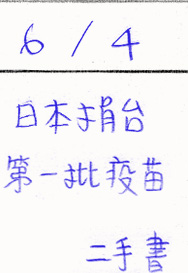 6/4
日本捐台
第一批疫苗
二手書